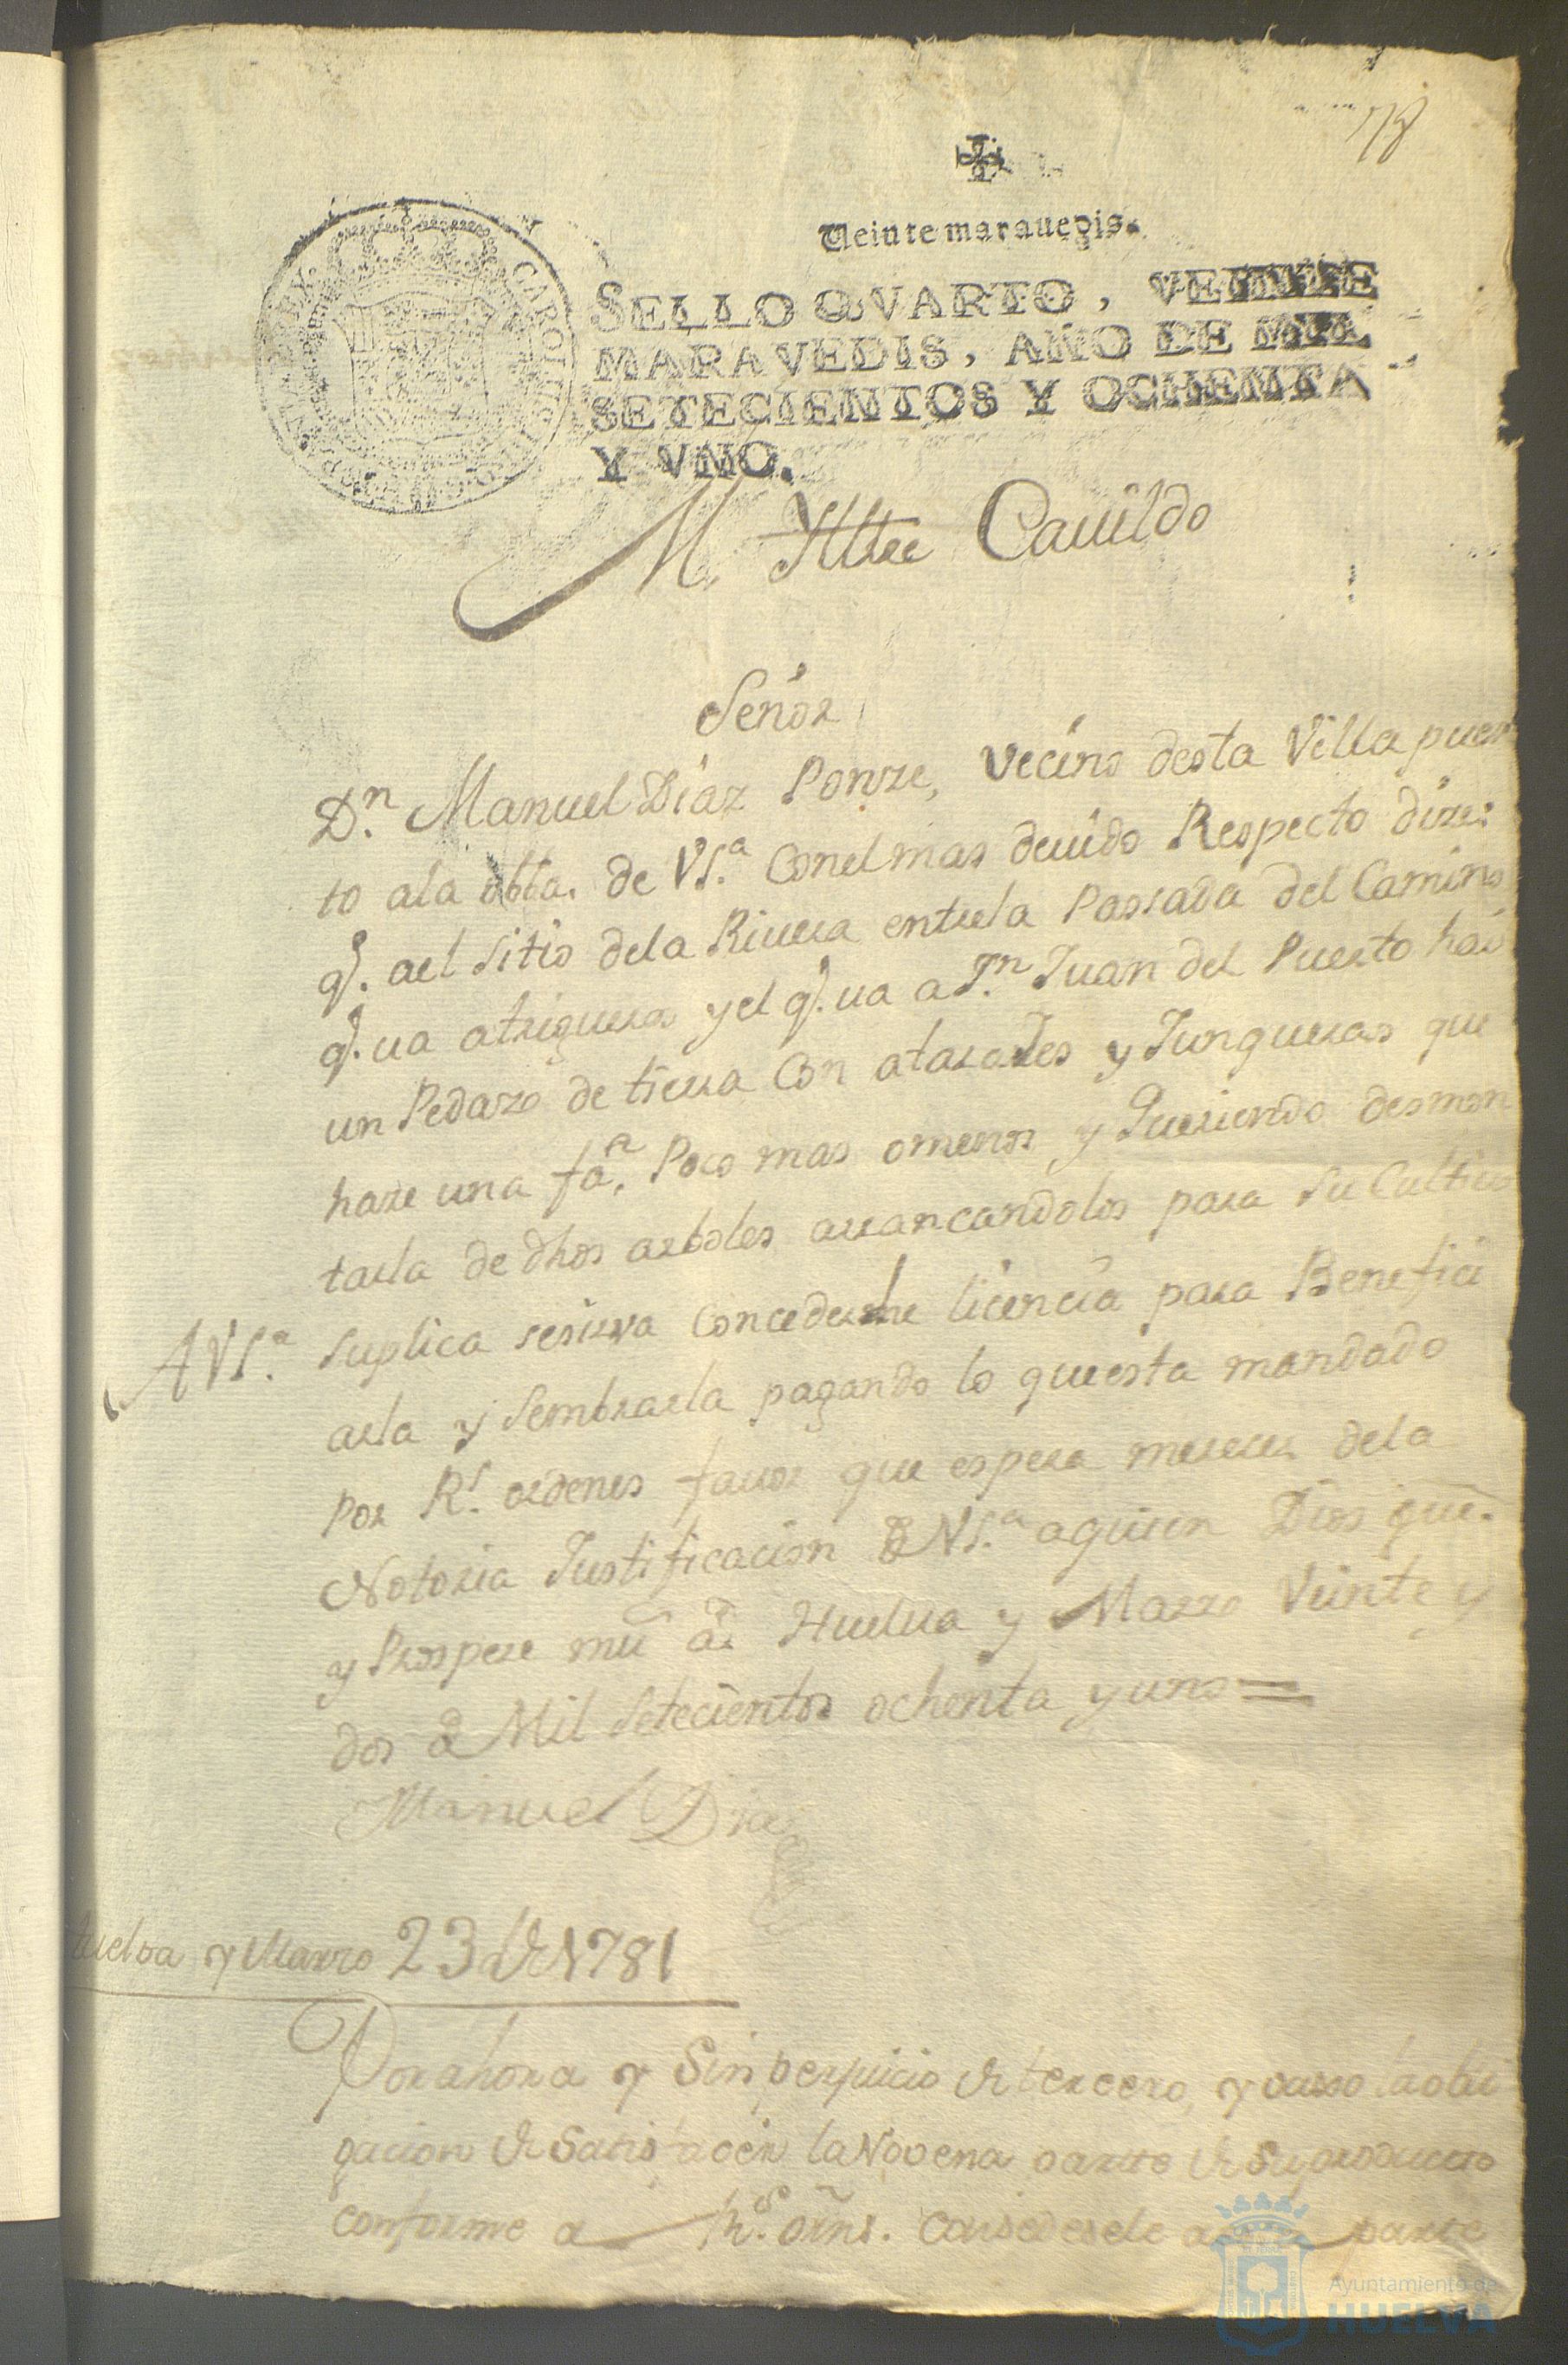 78
Veinte marauedis.
SELLO QVARTO, VEINTE
MARAVEDIS, AÑO DE MIL
SETECIENTOS Y OCHENTA
Y VNO.
M. Yltre Cauildo
Señor
Dn. Manuel Diaz Ponze, vecino desta Villa pues
to ala obba. de VSa. Conel mas deuido Respecto dize:
q. ael sitio dela Riuera entrela Passada del Camino
q. ua atrigueros y el q. ua a Sn. Juan del Puerto hai
un Pedazo de tierra Con atarajes y Junqueras que
haze una fa. Poco mas omenos y Queriendo desmon
tarla de dhos arboles arrancandolos para su Cultivo
AVSa. Suplica sesirva Concederle licencia para Benefici
arla y sembrarla pagando lo questa mandado
por Rs. ordenes fauor que espera merecer dela
Notoria Justificacion de VSa. aquien Dios gue.
y Prospere mu as. Huelua y Marzo Veinte y
dos de Mil Setecientos ochenta y uno =
Manuel Diaz
Huelva y Marzo 23 de 1781
Por ahora y Sin perjuicio de tercero, y vaxo la obli
gacion de Satisfacer la Novena parte de Su producto
conforme a Rs. orns. concedesele a parte
Ayuntamiento de
HUELVA